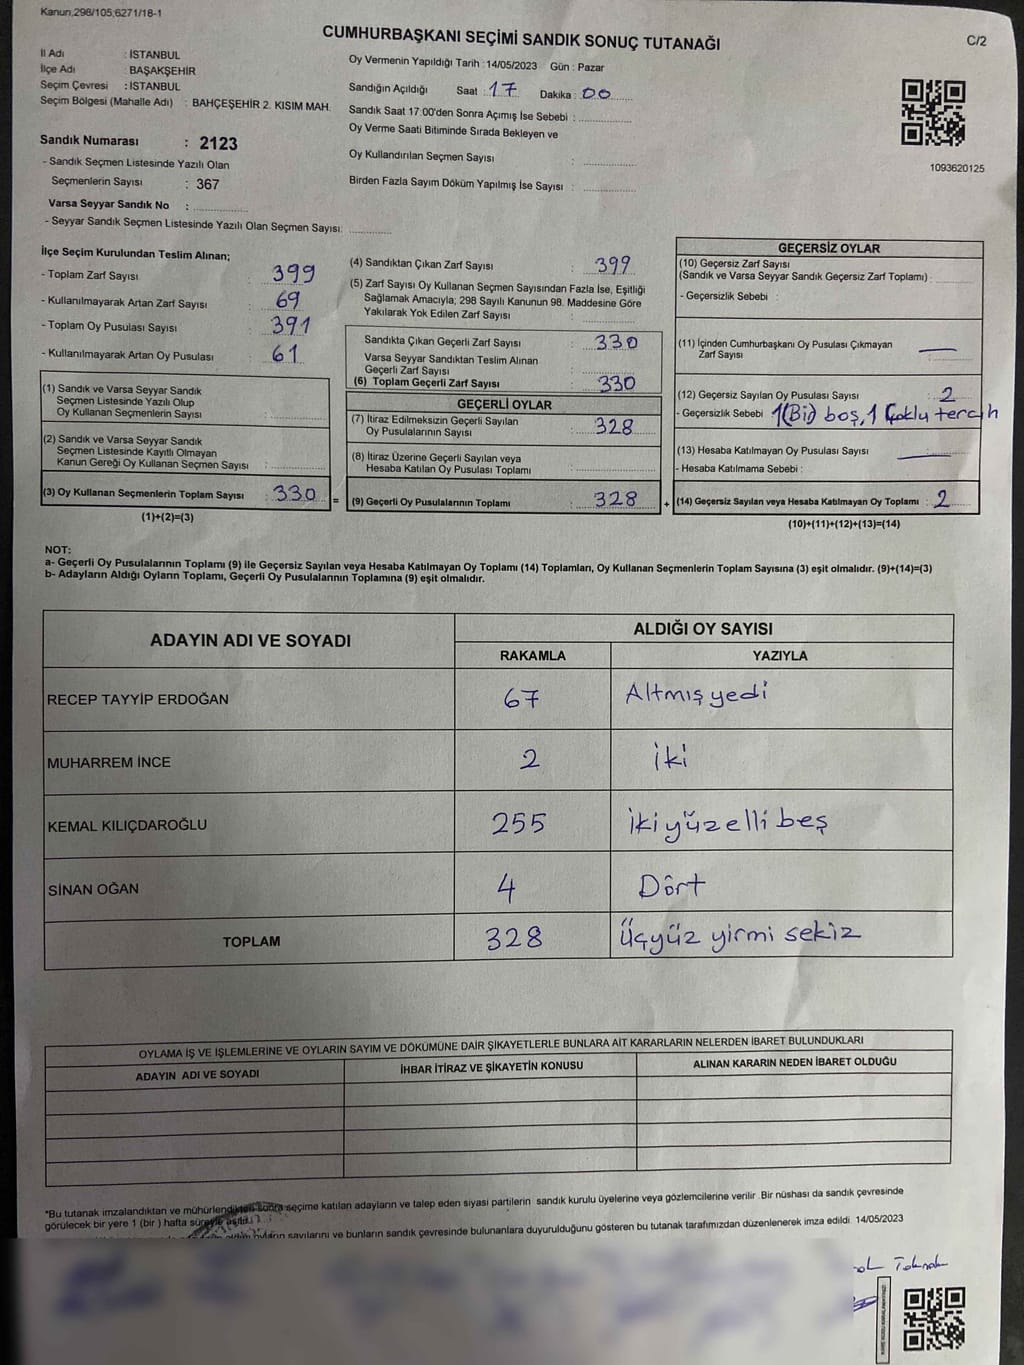 Kanun,298/105,6271/18-1
CUMHURBAŞKANI SEÇİMİ SANDIK SONUÇ TUTANAĞI
C/2
İl Adı : İSTANBUL
İlçe Adı : BAŞAKŞEHİR
Seçim Çevresi : İSTANBUL
Seçim Bölgesi (Mahalle Adı) : BAHÇEŞEHİR 2. KISIM MAH.
Sandık Numarası : 2123
- Sandık Seçmen Listesinde Yazılı Olan
Seçmenlerin Sayısı : 367
Varsa Seyyar Sandık No :
- Seyyar Sandık Seçmen Listesinde Yazılı Olan Seçmen Sayısı:
Oy Vermenin Yapıldığı Tarih :14/05/2023 Gün : Pazar
Sandığın Açıldığı Saat : 17 Dakika : 00
Sandık Saat 17:00'den Sonra Açımış İse Sebebi :
Oy Verme Saati Bitiminde Sırada Bekleyen ve
Oy Kullandırılan Seçmen Sayısı :
Birden Fazla Sayım Döküm Yapılmış İse Sayısı :
1093620125
İlçe Seçim Kurulundan Teslim Alınan;
- Toplam Zarf Sayısı : 399
- Kullanılmayarak Artan Zarf Sayısı : 69
- Toplam Oy Pusulası Sayısı : 391
- Kullanılmayarak Artan Oy Pusulası : 61
(1) Sandık ve Varsa Seyyar Sandık
Seçmen Listesinde Yazılı Olup
Oy Kullanan Seçmenlerin Sayısı :
(2) Sandık ve Varsa Seyyar Sandık
Seçmen Listesinde Kayıtlı Olmayan
Kanun Gereği Oy Kullanan Seçmen Sayısı :
(3) Oy Kullanan Seçmenlerin Toplam Sayısı : 330 =
(1)+(2)=(3)
(4) Sandıktan Çıkan Zarf Sayısı : 399
(5) Zarf Sayısı Oy Kullanan Seçmen Sayısından Fazla İse, Eşitliği
Sağlamak Amacıyla; 298 Sayılı Kanunun 98. Maddesine Göre
Yakılarak Yok Edilen Zarf Sayısı :
Sandıkta Çıkan Geçerli Zarf Sayısı : 330
Varsa Seyyar Sandıktan Teslim Alınan
Geçerli Zarf Sayısı :
(6) Toplam Geçerli Zarf Sayısı : 330
GEÇERLİ OYLAR
(7) İtiraz Edilmeksizin Geçerli Sayılan
Oy Pusulalarının Sayısı : 328
(8) İtiraz Üzerine Geçerli Sayılan veya
Hesaba Katılan Oy Pusulası Toplamı :
(9) Geçerli Oy Pusulalarının Toplamı : 328 +
GEÇERSİZ OYLAR
(10) Geçersiz Zarf Sayısı
(Sandık ve Varsa Seyyar Sandık Geçersiz Zarf Toplamı) :
- Geçersizlik Sebebi :
(11) İçinden Cumhurbaşkanı Oy Pusulası Çıkmayan
Zarf Sayısı : —
(12) Geçersiz Sayılan Oy Pusulası Sayısı : 2
- Geçersizlik Sebebi 1(Bi) boş, 1 Çoklu tercih
(13) Hesaba Katılmayan Oy Pusulası Sayısı : —
- Hesaba Katılmama Sebebi :
(14) Geçersiz Sayılan veya Hesaba Katılmayan Oy Toplamı : 2
(10)+(11)+(12)+(13)=(14)
NOT:
a- Geçerli Oy Pusulalarının Toplamı (9) ile Geçersiz Sayılan veya Hesaba Katılmayan Oy Toplamı (14) Toplamları, Oy Kullanan Seçmenlerin Toplam Sayısına (3) eşit olmalıdır. (9)+(14)=(3)
b- Adayların Aldığı Oyların Toplamı, Geçerli Oy Pusulalarının Toplamına (9) eşit olmalıdır.
ADAYIN ADI VE SOYADI
ALDIĞI OY SAYISI
RAKAMLA YAZIYLA
RECEP TAYYİP ERDOĞAN 67 Altmış yedi
MUHARREM İNCE 2 iki
KEMAL KILIÇDAROĞLU 255 iki yüz elli beş
SİNAN OĞAN 4 Dört
TOPLAM 328 Üçyüz yirmi sekiz
OYLAMA İŞ VE İŞLEMLERİNE VE OYLARIN SAYIM VE DÖKÜMÜNE DAİR ŞİKAYETLERLE BUNLARA AİT KARARLARIN NELERDEN İBARET BULUNDUKLARI
ADAYIN ADI VE SOYADI İHBAR İTİRAZ VE ŞİKAYETİN KONUSU ALINAN KARARIN NEDEN İBARET OLDUĞU
*Bu tutanak imzalandıktan ve mühürlendikten sonra seçime katılan adayların ve talep eden siyasi partilerin sandık kurulu üyelerine veya gözlemcilerine verilir .Bir nüshası da sandık çevresinde
görülecek bir yere 1 (bir ) hafta süreyle asılır.
oyların sayılarını ve bunların sandık çevresinde bulunanlara duyurulduğunu gösteren bu tutanak tarafımızdan düzenlenerek imza edildi. 14/05/2023